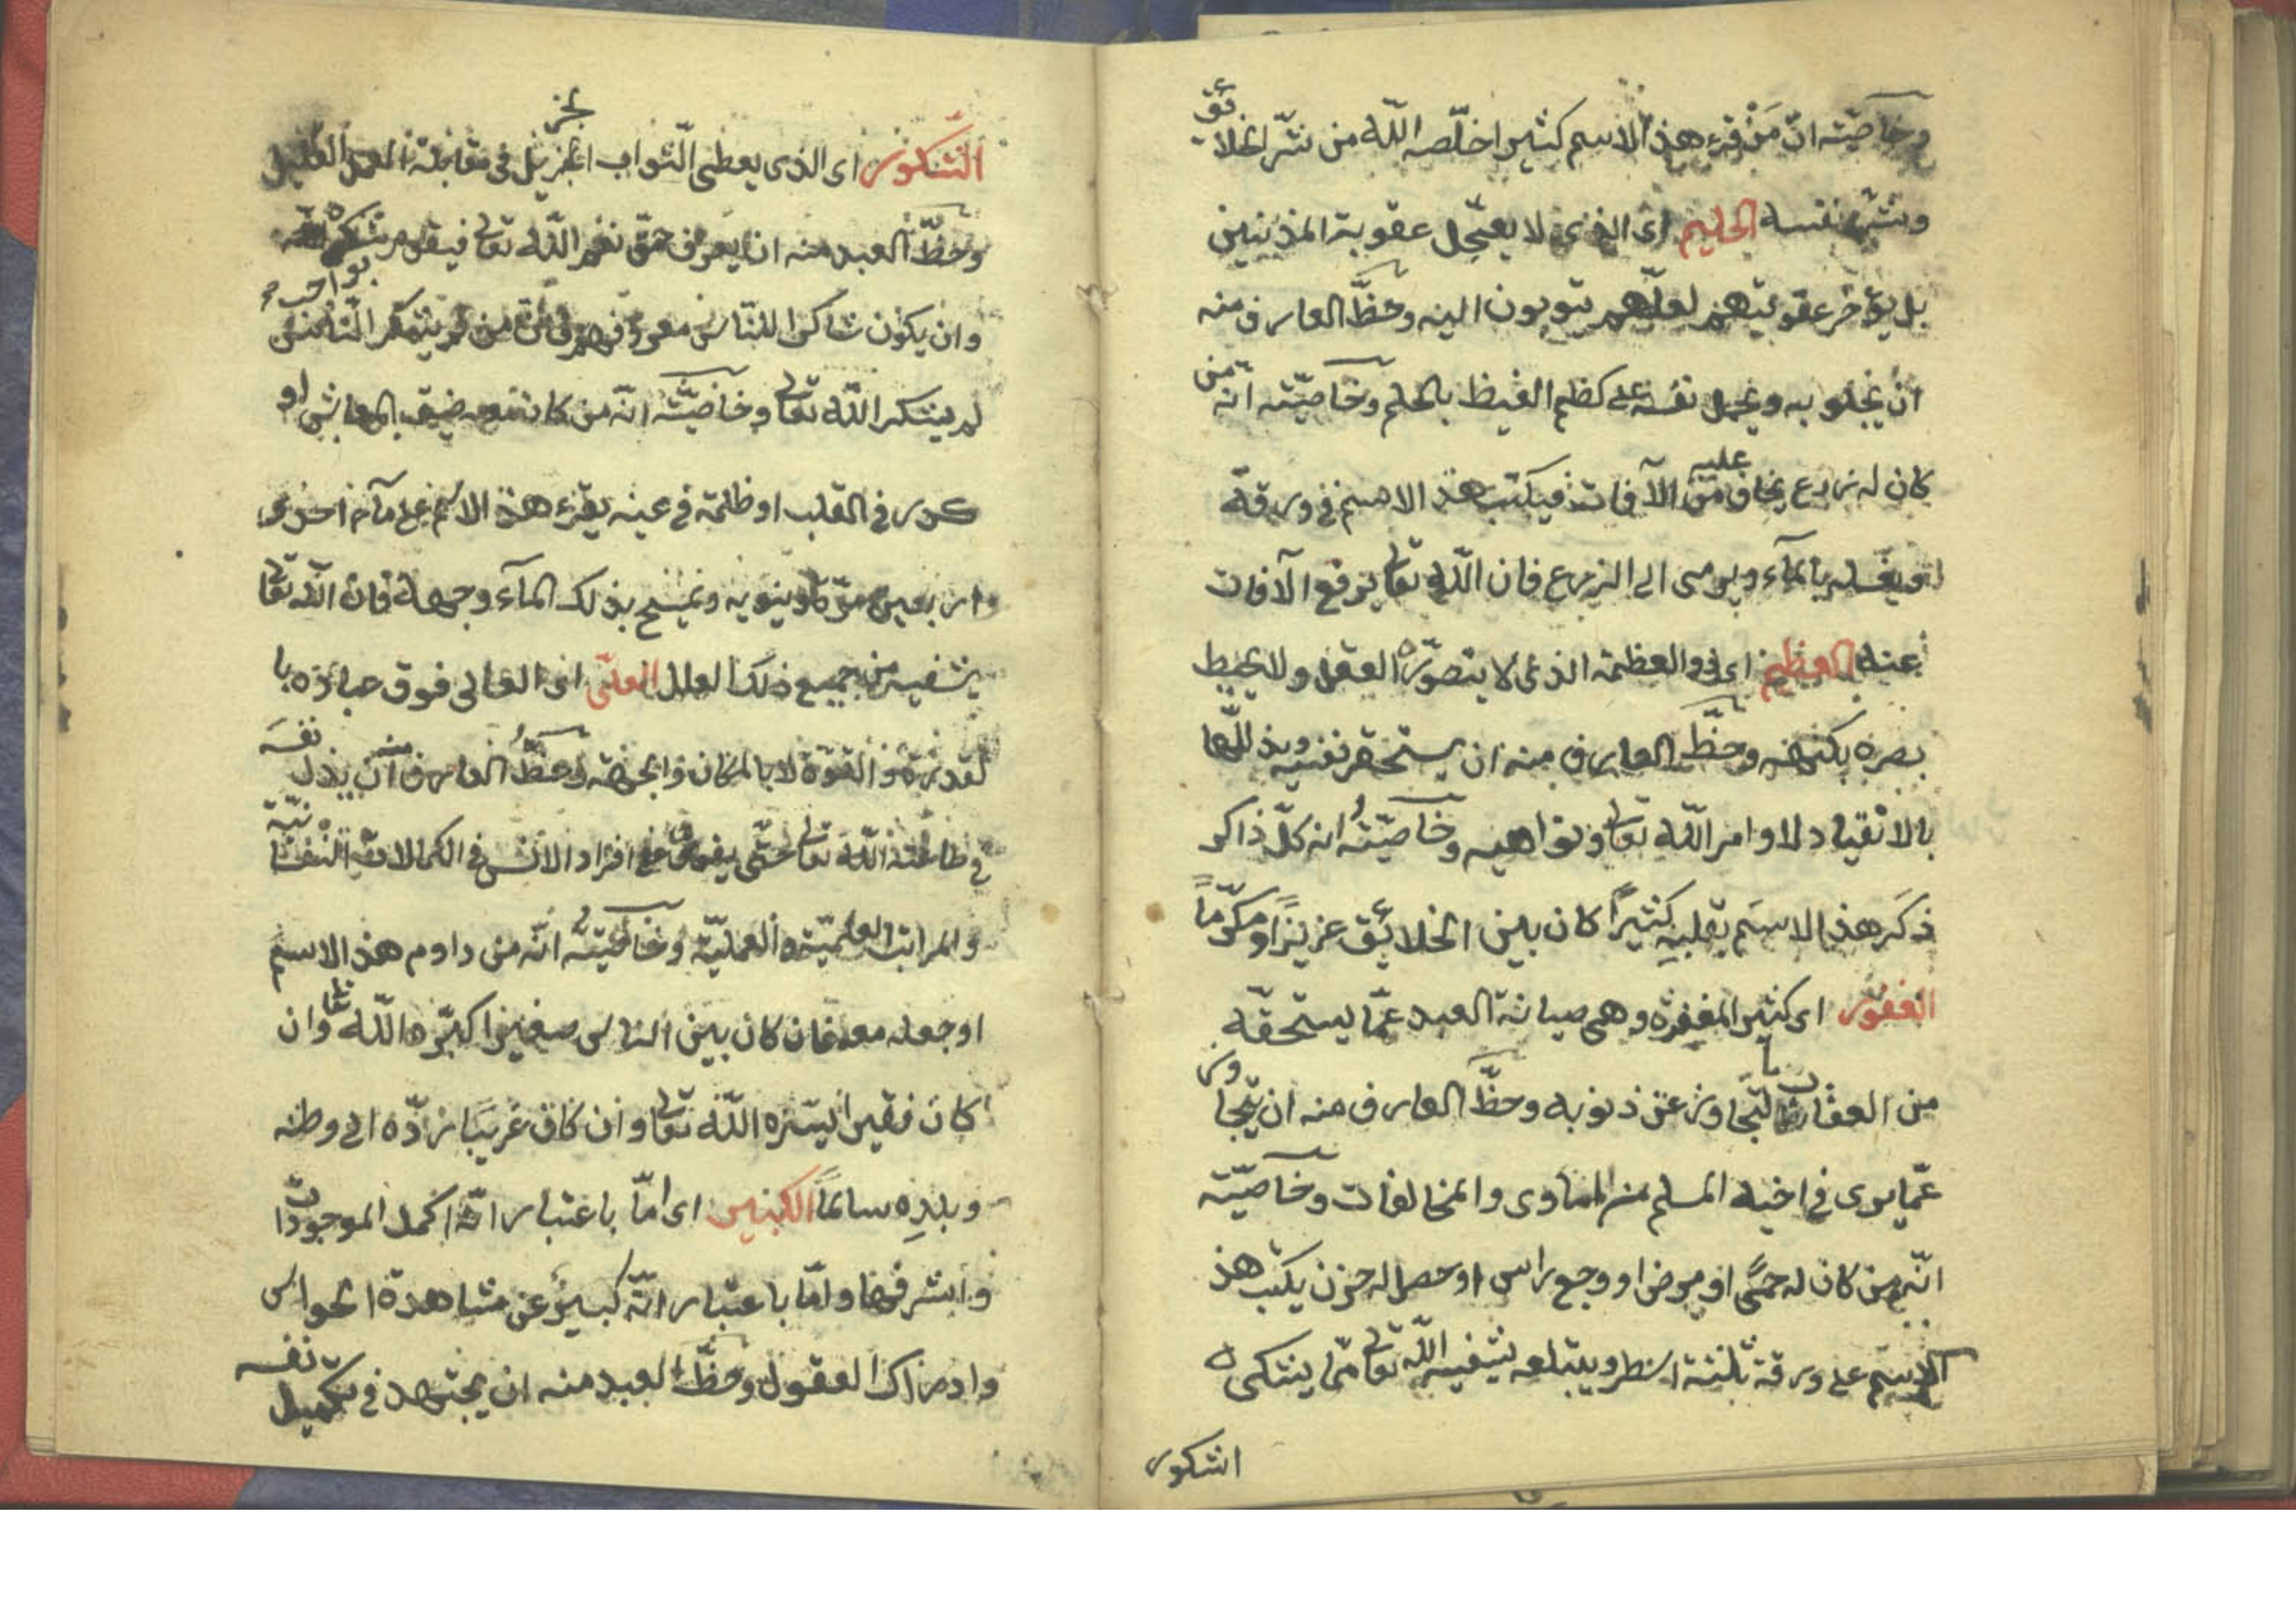 وخاصّيته انّ مَنْ قرء هذا الاسم كثيرا خلّصه الله من شرّ الخلائق
وشرّ نفسه الحليم اى الذى لا يعجّل عقوبة المذنبين
بل يؤخّر عقوبتهم لعلّهم يتوبون اليه وحظّ العارف منه
ان يتخلق به ويحمل نفسه على كظم الغيظ بالحلم وخاصّيّته انّه من
كان له زرع يخاف عليه من الآفات فيكتب هذ الاسم فى ورقة
ويغسله بالمآء ويرمى الى الزرع فان الله تعالى يرفع الآفات
عنه العظيم اى ذو العظمة الذى لا يتصوّره العقل ولا يحيط
بصره بكنهه وحظّ العارف منه ان يستحقر نفسه ويذللّها
بالانقياد لاوامر الله تعالى ونواهيه وخاصّيّتُه انه كلّ ذاكر
ذكَر هذ الاسم بقلبِه كثيرًا كان بين الخلائق عزيزًا ومكرّمًا
الغفور اى كثير المغفرة وهى صيانة العبد عمّا يستحقّه
من العقاب بالتّجاوز عن ذنوبه وحظّ العارف منه ان يتجاوز
عمّا يرى فى اخيه المسلم من المساوى والمخالفات وخاصّيّته
انّه من كان له حمّى او مرض او وجع راس او حصل له حزن يكتب هذ
الاسم على ورقة ثلثة اسطر ويبتلعه يشفيه الله تعالى ممّا يشتكى ه
الشكور
الشّكور اى الذى يعطى الثّواب الجزيل فى مقابلة العمل القليل
وحظّ العبد منه ان يعرف حقّ نعم الله تعالى فيقوم بواجب شكره
وان يكون شاكرا للنّاس معروفهم فانّ من لم يشكر النّاس
لم يشكر الله تعالى وخاصّيّته انّه من كان به ضيق المعاش او
كدر فى القلب او ظلمة فى عينه يقرء هذ الاسم على مآء احدى
واربعين مرّة ويمسح بذلك المآء وجهه فان الله تعالى
يشفيه من جميع ذلك العلل العلىّ اى العالى فوق عباده با
لقدرة والقوّة لا بالمكان والجهة وحظّ العارف منه ان يذل نفسه
فى طاعة الله تعالى حتّى يفوق على افراد الانس فى الكمالات النّفسانيّة
والمراتب العلميّة والعمليّة وخاصّيّته انّه من داوم هذ الاسم
او جعله معه فان كان بين الناس صغيرا كبّره الله تعالى وان
كان فقيرا يسّره الله تعالى وان كان غريبًا ردّه الى وطنه
وبلدِه سالمًا الكبير اى امّا باعتبار انّه اكمل الموجودات
واشرفها وامّا باعتبار انّه كبير عن مشاهدة الحواس
وادراك العقول وحظّ العبد منه ان يجتهد فى تكميل نفسه